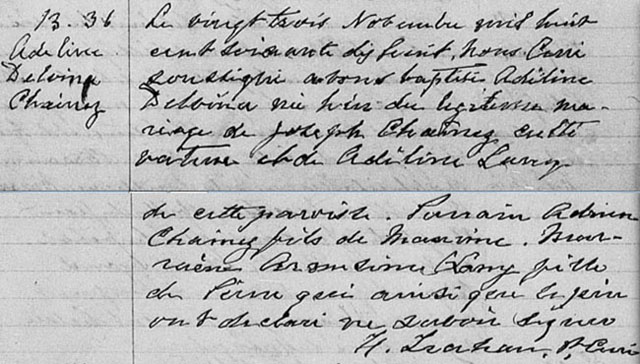 B. 36
Adeline
Delvina
Chainez
Le vingt trois Novembre mil huit
cent soixante dix huit, Nous Curé
soussigné avons baptisé Adeline
Delvina née hier du légitime ma-
riage de Joseph Chainez culti
vateur et de Adeline Lamy
de cette paroisse. Parrain Adrien
Chainez fils de Maxime. Mar-
raine Arzeusine Lamy fille
de Pierre qui ainsi que le père
ont déclaré ne savoir signer
H. Trahan, Ptre Curé